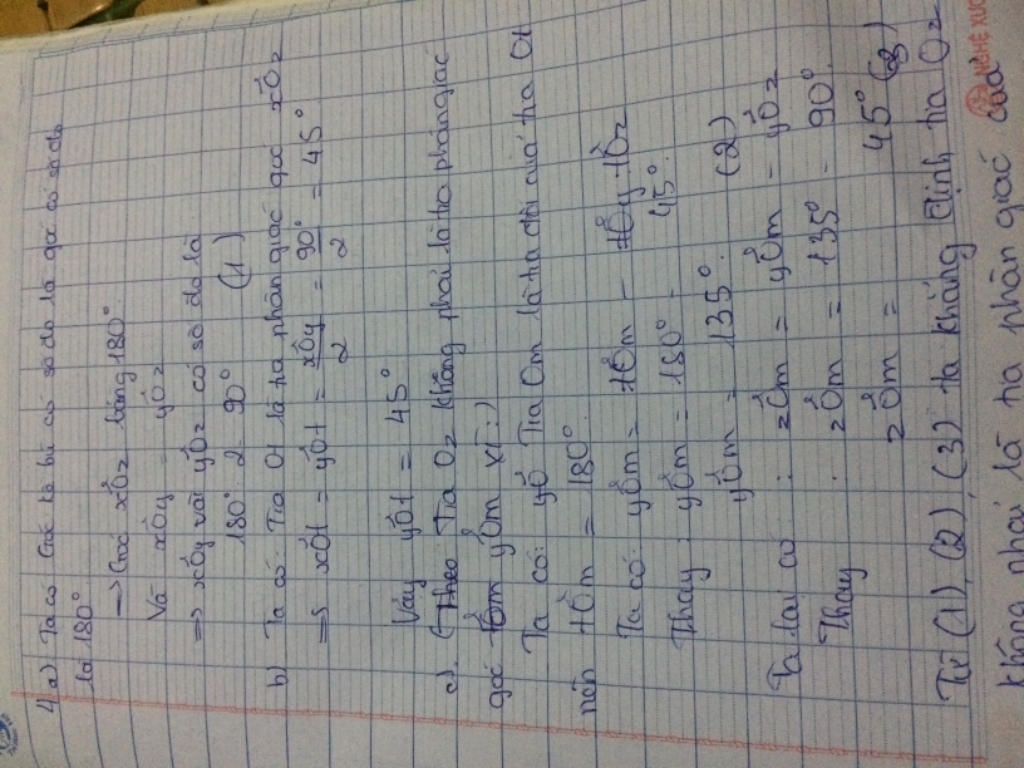 4. a) Ta có Góc kề bù có số đo là góc có số đo
là 180°
=> Góc xOz bằng 180°
Và xOy = yOz
=> xOy và yOz có số đo là
180° : 2 = 90° (1)
b) Ta có: Tia Ot là tia phân giác góc xOz
=> xOt = yOt = xOy/2 = 90°/2 = 45°
Vậy yOt = 45°
c). (Theo Tia Oz không phải là tia phân giác
góc tOm yOm vì:)
Ta có: yO Tia Om là tia đối của tia Ot
nên tOm = 180°
Ta có: yOm = tOm - tOy tOz
Thay: yOm = 180° - 45°
yOm = 135°. (2)
Ta lại có: zOm = yOm - yOz
Thay: zOm = 135° - 90°
zOm = 45° (3)
Từ (1) (2) (3) ta khẳng định tia Oz
không phải là tia phân giác của
NGHE